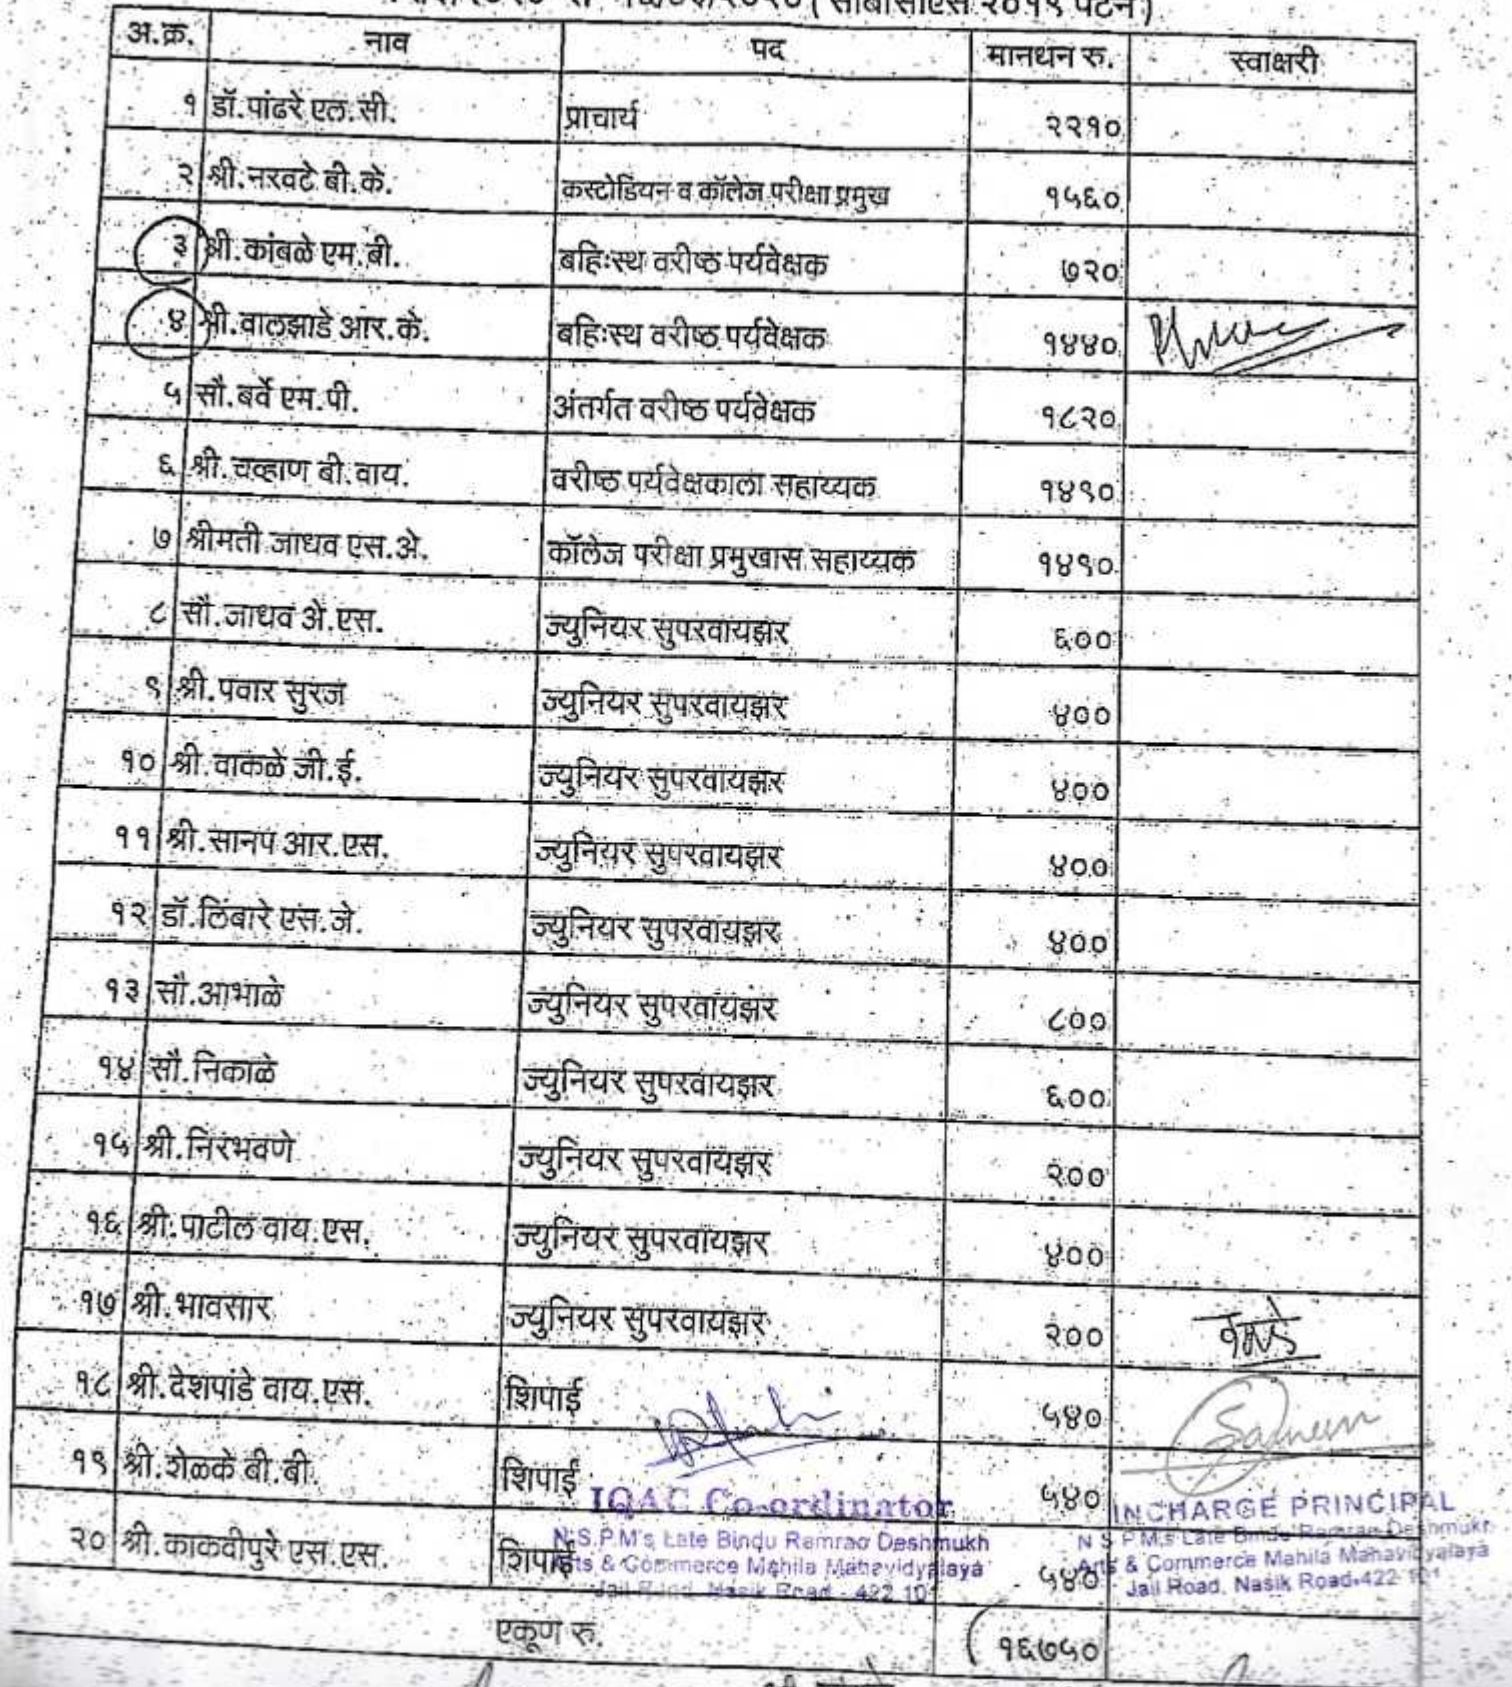 ( सीबीसीएस २०१९ पॅटर्न )
अ.क्र. नाव पद मानधन रु. स्वाक्षरी
१ डॉ.पांढरे एल.सी. प्राचार्य २२१०
२ श्री.नरवटे बी.के. कस्टोडियन व कॉलेज परीक्षा प्रमुख १५६०
३ श्री.कांबळे एम.बी. बहिःस्थ वरीष्ठ पर्यवेक्षक ७२०
४ श्री.वालझाडे आर.के. बहिःस्थ वरीष्ठ पर्यवेक्षक १४४०
५ सौ.बर्वे एम.पी. अंतर्गत वरीष्ठ पर्यवेक्षक १८२०
६ श्री.चव्हाण बी.वाय. वरीष्ठ पर्यवेक्षकाला सहाय्यक १४९०
७ श्रीमती जाधव एस.अे. कॉलेज परीक्षा प्रमुखास सहाय्यक १४९०
८ सौ.जाधव अे.एस. ज्युनियर सुपरवायझर ६००
९ श्री.पवार सुरज ज्युनियर सुपरवायझर ४००
१० श्री.वाकळे जी.ई. ज्युनियर सुपरवायझर ४००
११ श्री.सानप आर.एस. ज्युनियर सुपरवायझर ४००
१२ डॉ.लिंबारे एस.जे. ज्युनियर सुपरवायझर ४००
१३ सौ.आभाळे ज्युनियर सुपरवायझर ८००
१४ सौ.निकाळे ज्युनियर सुपरवायझर ६००
१५ श्री.निरभवणे ज्युनियर सुपरवायझर २००
१६ श्री.पाटील वाय.एस. ज्युनियर सुपरवायझर ४००
१७ श्री.भावसार ज्युनियर सुपरवायझर २००
१८ श्री.देशपांडे वाय.एस. शिपाई ५४०
१९ श्री.शेळके बी.बी. शिपाई ५४०
२० श्री.काकवीपुरे एस.एस. शिपाई ५४०
एकूण रु. १६७५०
IQAC Co-ordinator
N.S.P.M's Late Bindu Ramrao Deshmukh
Arts & Commerce Mahila Mahavidyalaya
Jail Road, Nasik Road - 422 101
INCHARGE PRINCIPAL
N.S.P.M.s Late Bindu Ramrao Deshmukh
Arts & Commerce Mahila Mahavidyalaya
Jail Road, Nasik Road-422 101